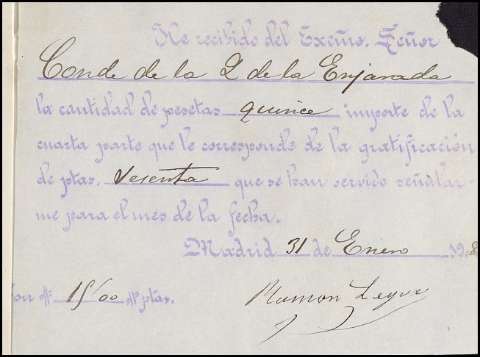 He recibido del Excmo. Señor
Conde de la Q de la Enjarada
la cantidad de pesetas quince importe de la
cuarta parte que le corresponde de la gratificación
de ptas. sesenta que se han servido señalar-
me para el mes de la fecha.
Madrid 31 de Enero 19
Son # 15/00 # ptas.
Ramon Leyva